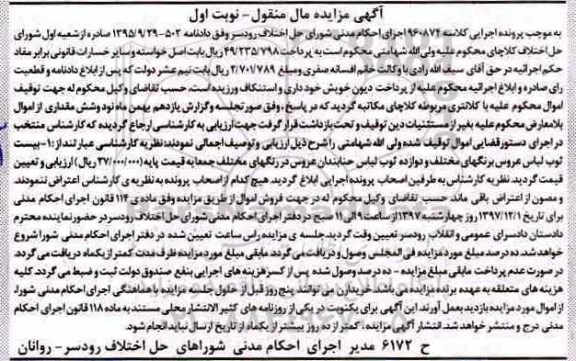 آگهی مزایده مال منقول - نوبت اول
به موجب پرونده اجرایی کلاسه ۹۶۰۸۷۴ اجرای احکام مدنی شورای حل اختلاف رودسر وفق دادنامه ۵۰۲-۱۳۹۵/۹/۲۹ صادره از شعبه اول شورای
حل اختلاف کلاچای محکوم علیه ولی الله شهامتی محکوم است به پرداخت ۴۹/۲۳۵/۷۹۸ ریال بابت اصل خواسته و سایر خسارات قانونی برابر مفاد
حکم اجرائیه در حق آقای سیف الله رادی با وکالت خانم افسانه صفری و مبلغ ۲/۷۰۱/۷۸۹ ریال بابت نیم عشر دولت که پس از ابلاغ دادنامه و قطعیت
رای صادره و ابلاغ اجرائیه محکوم علیه از پرداخت دیون خویش خودداری و استنکاف ورزیده است، حسب تقاضای وکیل محکوم له جهت توقیف
اموال محکوم علیه با کلانتری مربوطه کلاچای مکاتبه گردید که در پاسخ، وفق صورتجلسه و گزارش یازدهم بهمن ماه نود وشش مقداری از اموال
بلامعارض محکوم علیه بغیر از مستثنیات دین توقیف و تحت بازداشت قرار گرفت جهت ارزیابی به کارشناسی ارجاع گردیده که کارشناس منتخب
در اجرای دستور قضایی اموال توقیف شده ولی الله شهامتی را شرح ذیل ارزیابی و توصیف اجمالی نمودند: نظریه کارشناسی عبارتند از: ۱- بیست
ثوب لباس عروس برنگهای مختلف و دوازده ثوب لباس حنابندان عروس در رنگهای مختلف جمعا به قیمت پایه (۲۷/۰۰۰/۰۰۰ ریال) ارزیابی و تعیین
قیمت گردید. نظریه کارشناس به طرفین اصحاب پرونده اجرایی ابلاغ گردید. هیچ کدام از اصحاب پرونده به نظریه ی کارشناس اعتراض ننمودند
و مصون از اعتراض باقی ماند حسب تقاضای وکیل محکوم له در جهت فروش اموال از طریق مزایده وفق ماده ی ۱۱۴ قانون اجرای احکام مدنی
برای تاریخ ۱۳۹۷/۱۲/۱ روز چهارشنبه ۱۳۹۷ از ساعت ۹ الی ۱۱ صبح در دفتر اجرای احکام مدنی شورای حل اختلاف رودسر در حضور نماینده محترم
دادستان دادسرای عمومی و انقلاب رودسر تعیین وقت گردید. جلسه ی مزایده راس ساعت تعیین شده در دفتر اجرای احکام مدنی شورا شروع
خواهد شد. ده درصد مبلغ مورد مزایده فی المجلس وصول و دریافت می گردد. مابقی مبلغ مورد مزایده ظرف مدت کمتر از یکماه دریافت می گردد.
در صورت عدم پرداخت مابقی مبلغ مزایده - ده درصد وصول شده پس از کسر هزینه های اجرایی بنفع صندوق دولت ثبت و ضبط می گردد. کلیه
هزینه های متعلقه به عهده برنده مزایده می باشد. خریداران می توانند پنج روز قبل از حلول جلسه مزایده با هماهنگی اجرای احکام مدنی شورا،
از اموال مورد مزایده بازدید بعمل آورند این آگهی برای یکنوبت در یکی از روزنامه های کثیر الانتشار محلی مستند به ماده ۱۱۸ قانون اجرای احکام
مدنی درج و منتشر خواهد شد. انتشار آگهی مزایده، کمتر از ده روز بیشتر از یکماه از تاریخ ارسال نباید انجام شود.
ح ۶۱۷۲ مدیر اجرای احکام مدنی شوراهای حل اختلاف رودسر - روانان